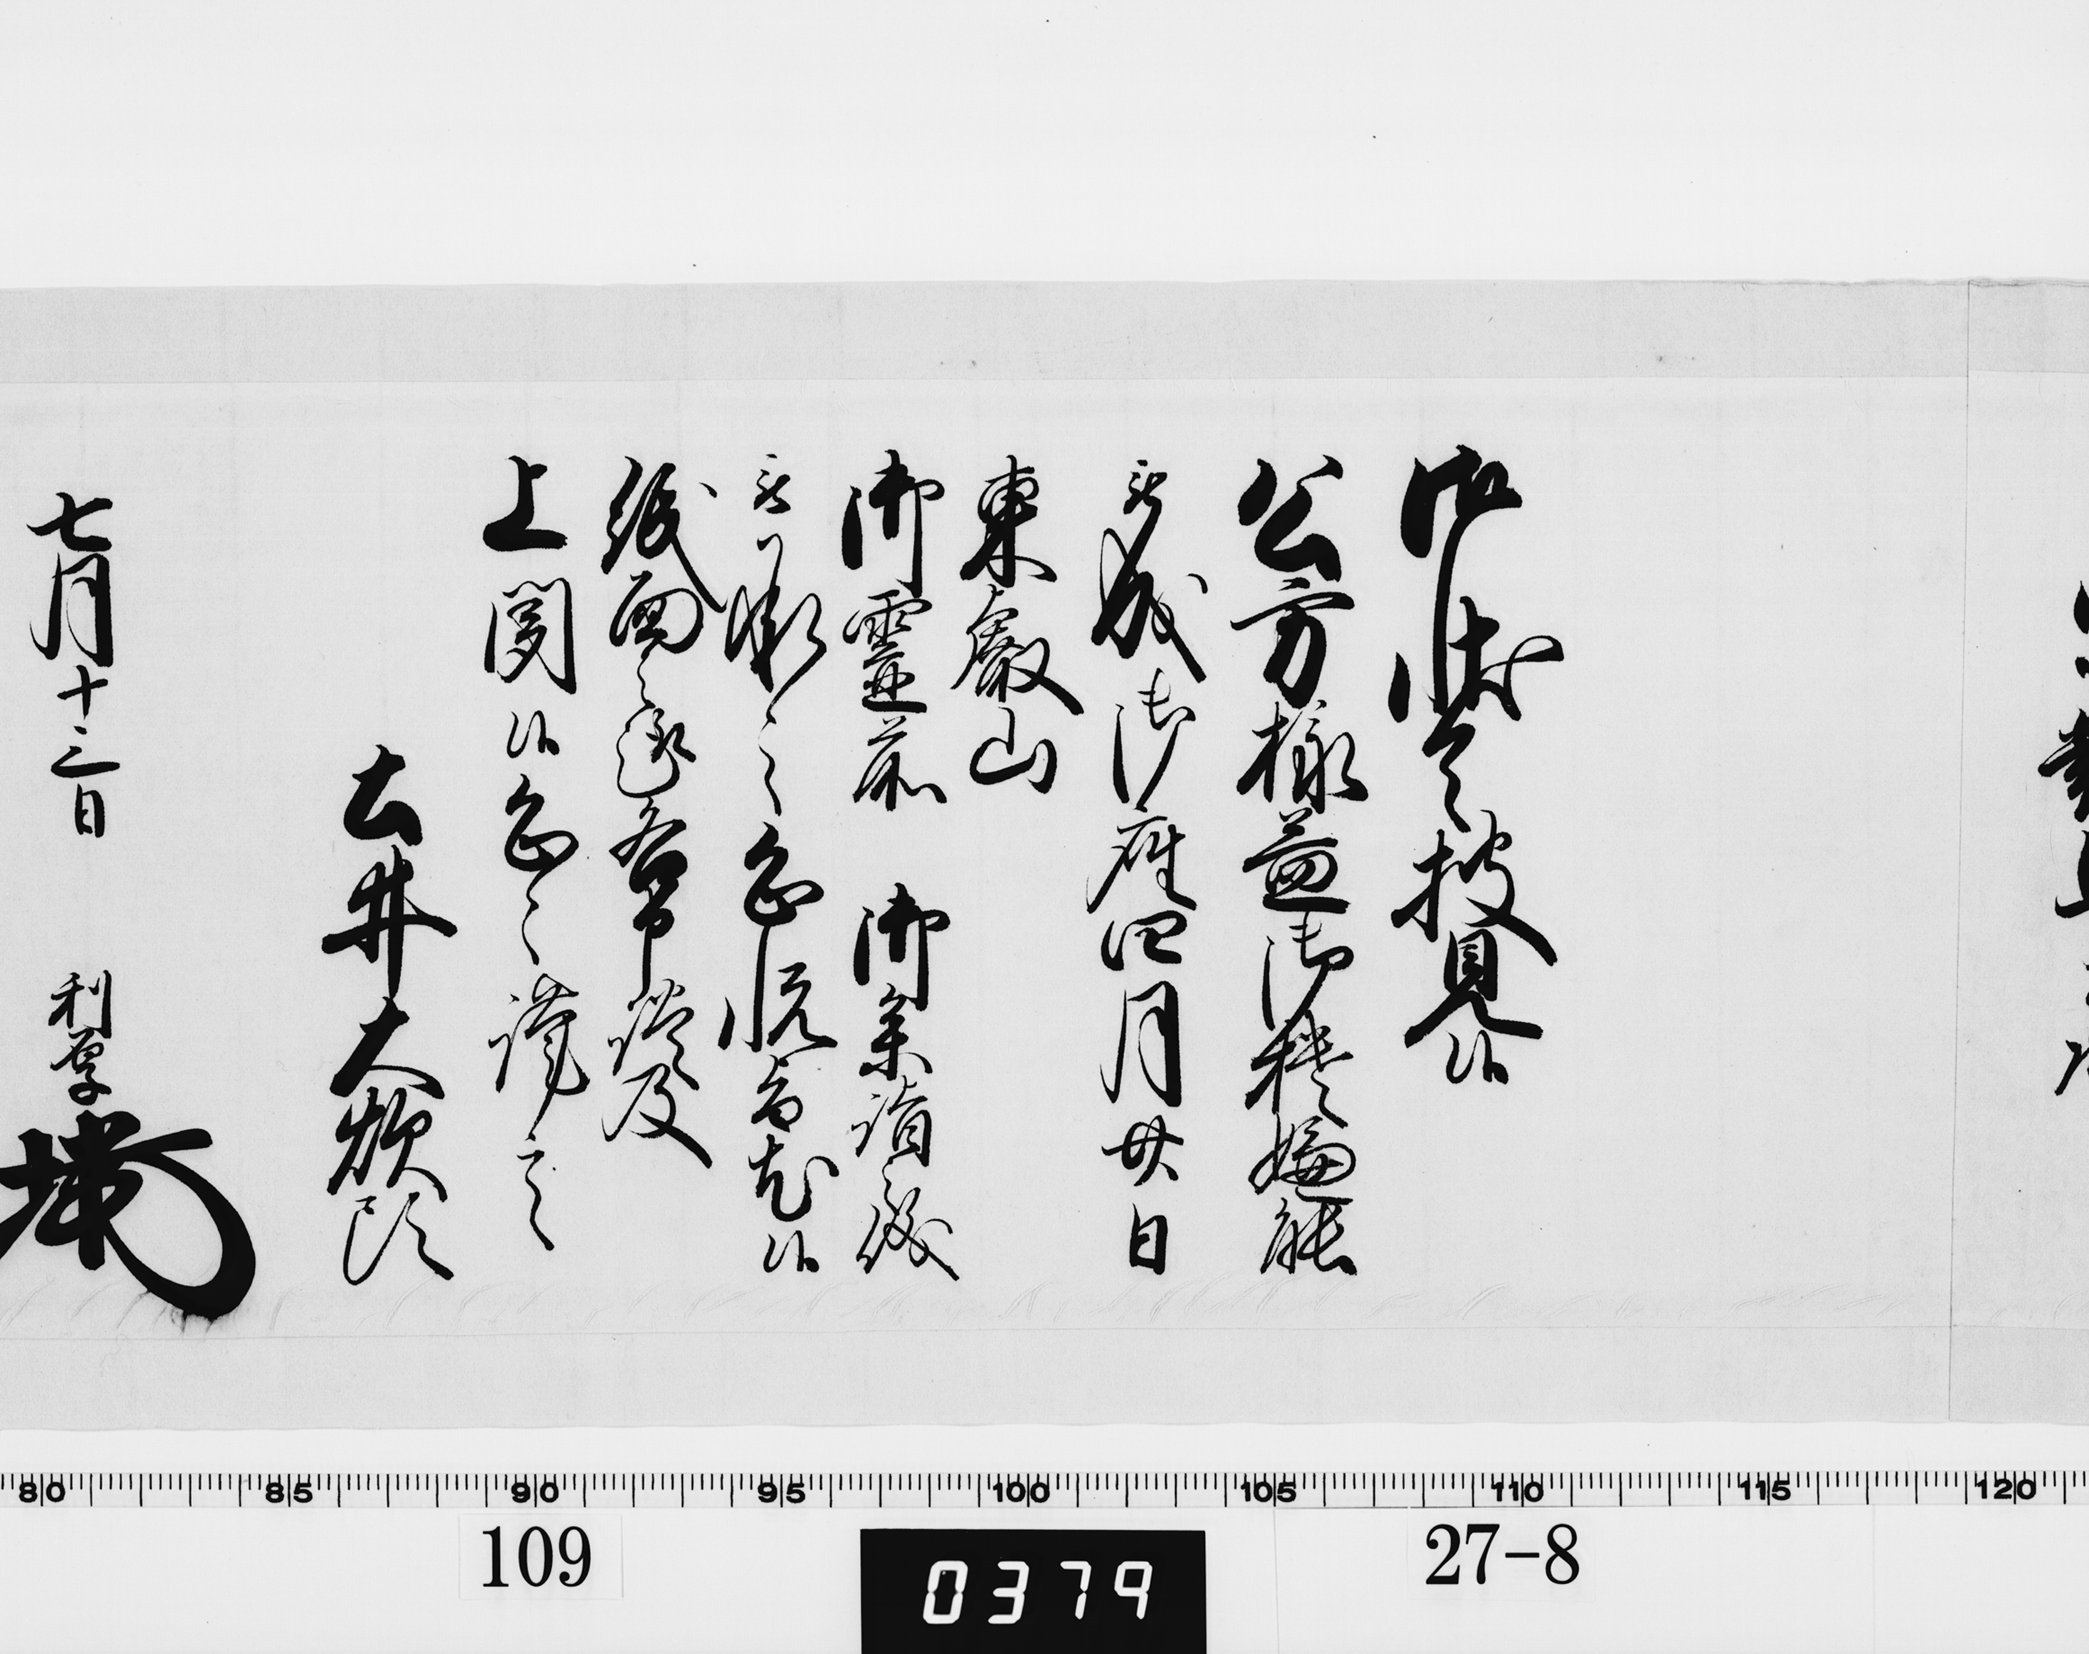 御状令披見候
公方様益御機嫌能
被成御座四月廿日
東叡山
御靈前 御参詣儀
被承之恐悦旨尤候
紙面之趣各申談及
上聞候恐々謹言
土井大炊頭
七月十三日 利厚
80 85 90 95 100 105 110 115 120
109 0379 27-8